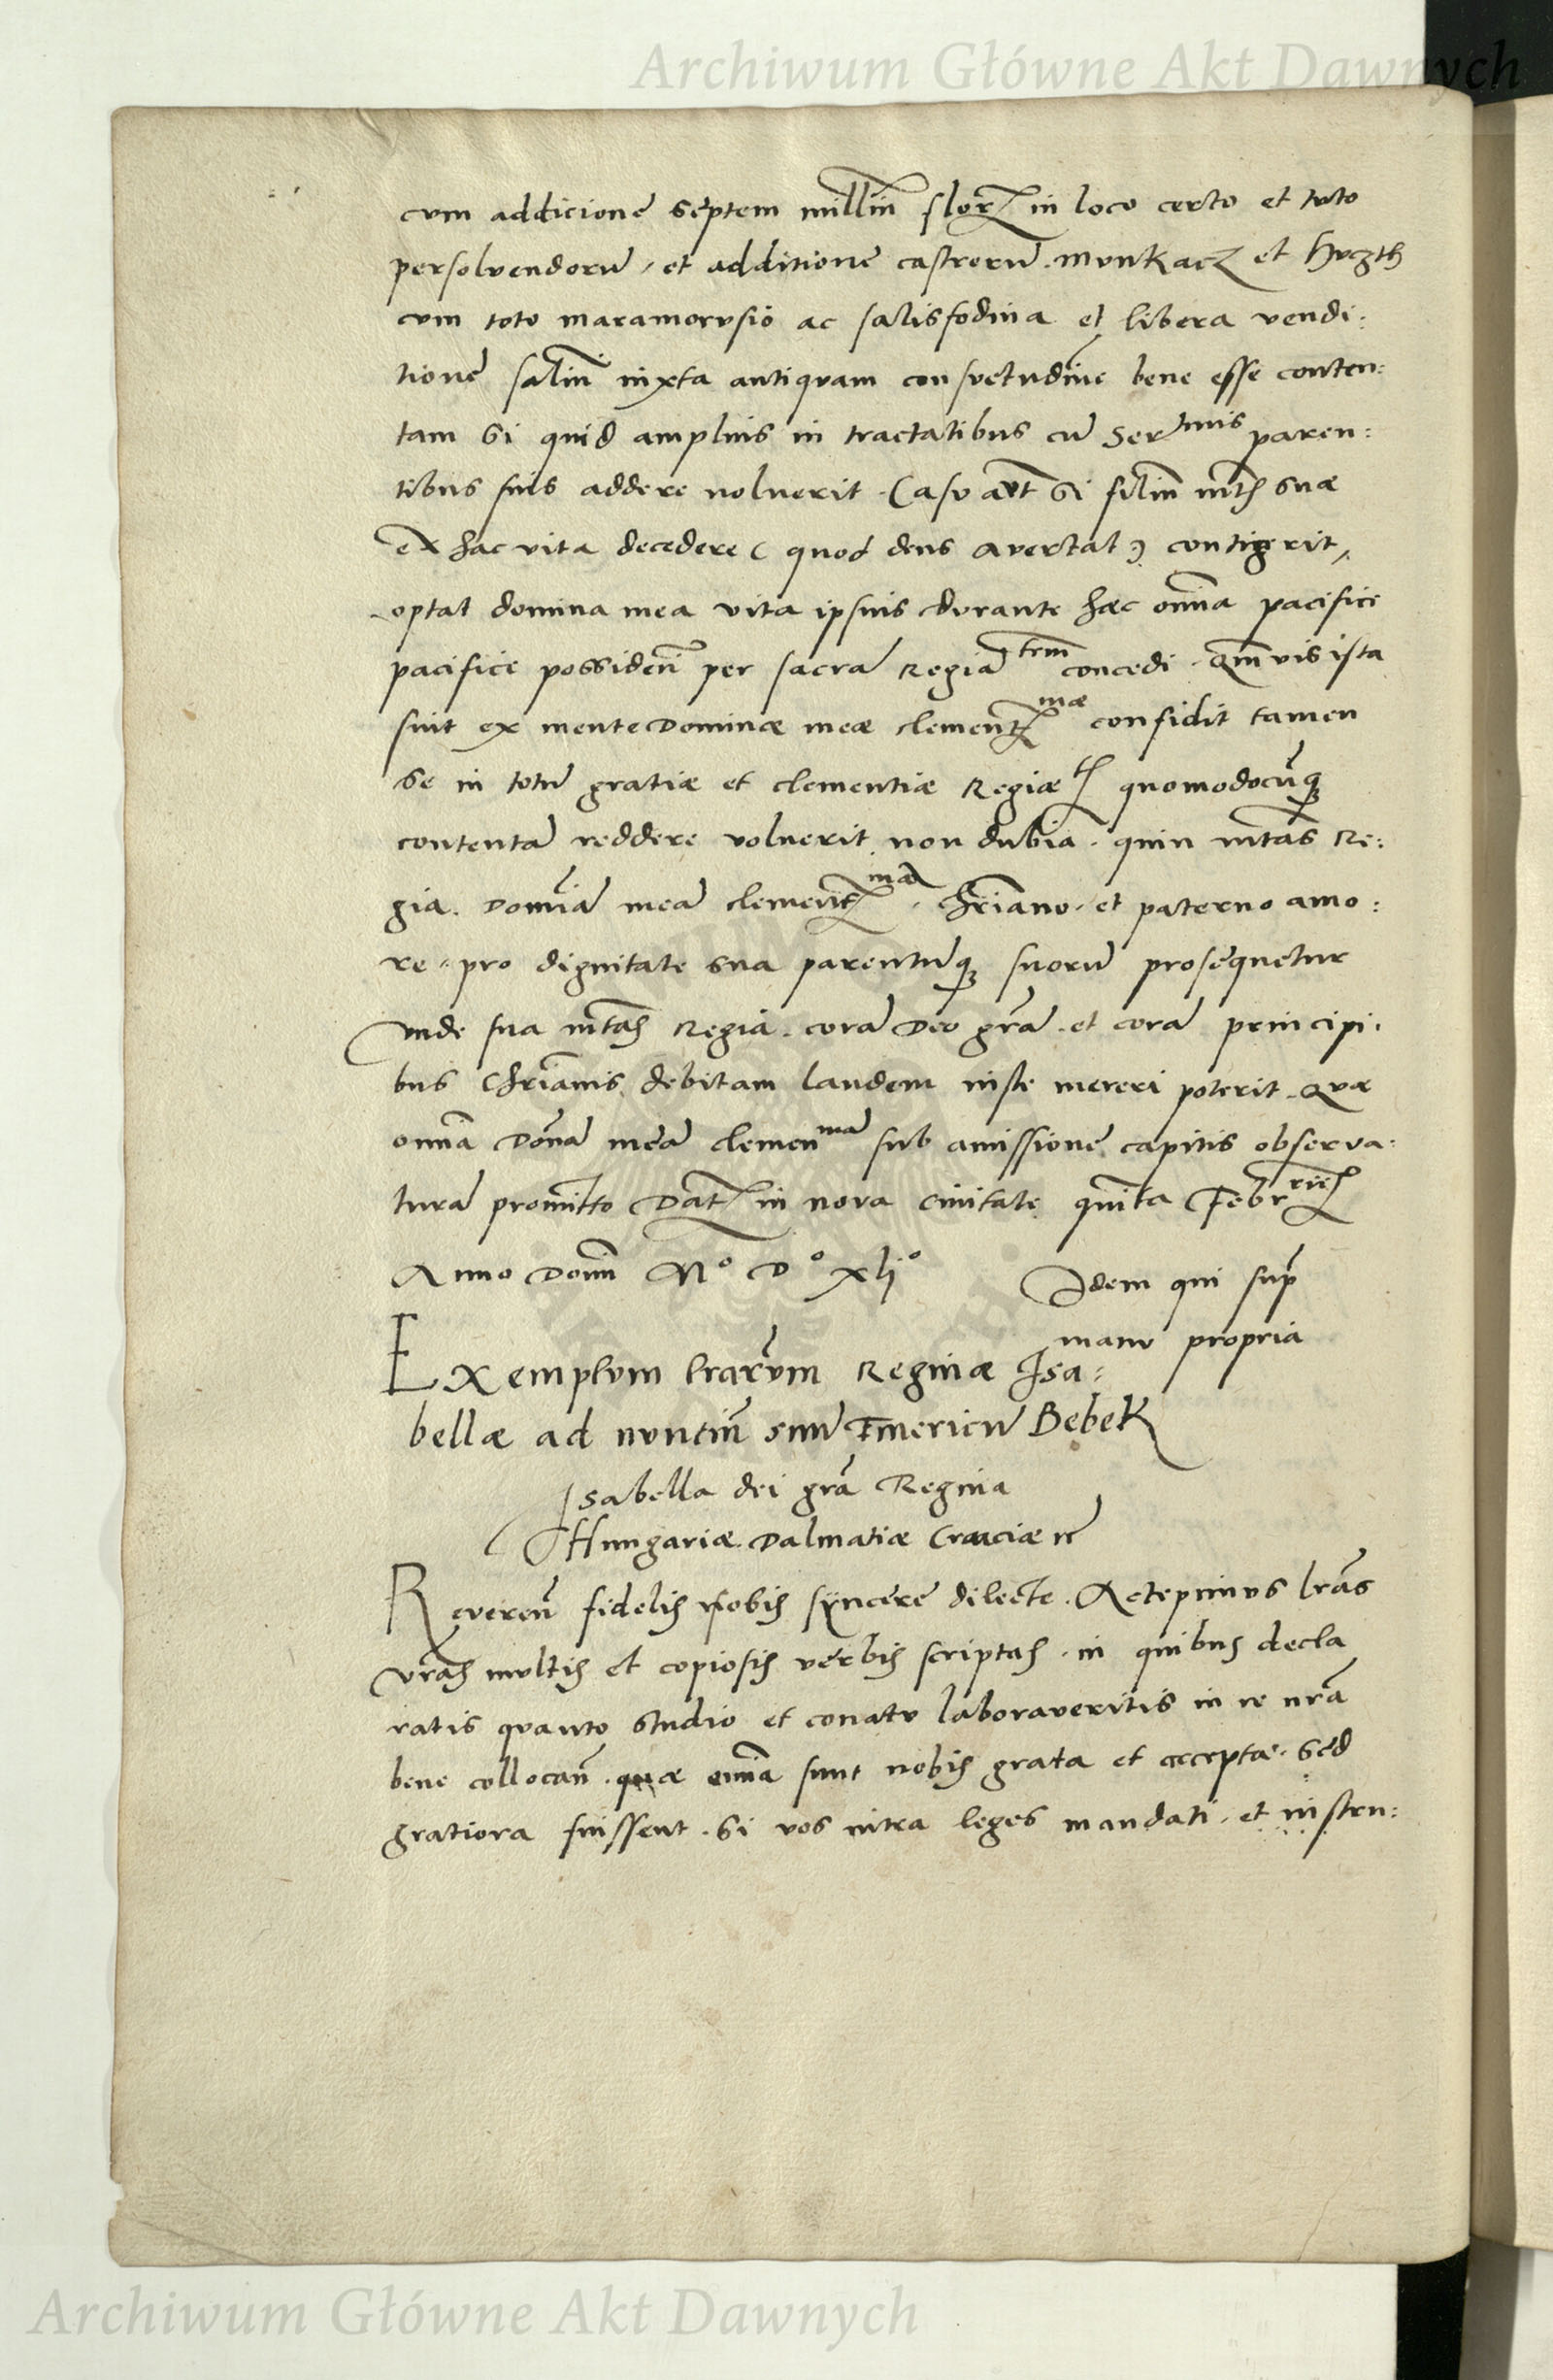 Archiwum Główne Akt Dawnych
cum addicione septem milliū flor in loco certo et tuto
persoluendorū, et additione castrorū Munkacz et Huczth
cum toto maramorusio ac salisfodina et libera vendi:
tione saliū iuxta antiquam consuetudinē bene esse conten:
tam si quid amplius in tractatibus cū Sermis paren:
tibus suis addere noluerit. Casu aūt si filiū mtis suæ
ex hac vita decedere (quod deus avertat) contigerit,
optat domina mea vita ipsius durante hæc omīa pacifice
pacifice possidenđ per sacrā Regiā tem concedi. Qm̄vis ista
sint ex mente Dominæ meæ clement mæ confidit tamen
se in totū gratiæ et clementiæ Regiæ tis quomodocūq
contentā reddere voluerit non dubia. quin mtas Re:
gia. Domīā meā clement mā. Chr̄iano. et paterno amo:
re. pro dignitate sua parentūq suorū prosequetur
Vnde sua mtas Regia. corā Deo grā. et corā principi:
bus Chr̄ianis debitam laudem iuste mereri poterit. Quæ
omīa Dōnā meā clemen mā sub amissione capitis observa:
turā promitto Dat in nova Ciuitate quīta Febr rie
Anno Domī Mº Dº xljº Idem qui sup̄
manu propria
Exemplum lr̄arum Reginæ Isa:
bellæ ad nuntiū suū Emericū Bebek
Isabella dei grā Regina
Hungariæ. Dalmatiæ Croaciæ rc
Reverenđ fidelis Nobis syncere dilecte. Accepimus lr̄as
vr̄as multis et copiosis verbis scriptas. in quibus decla
ratis quanto studio et conatu laboraveritis in re nr̄a
bene collocanđ. quæ omīa sunt nobis grata et accepta. sed
gratiora fuissent. si vos intra leges mandati. et instru:
Archiwum Główne Akt Dawnych